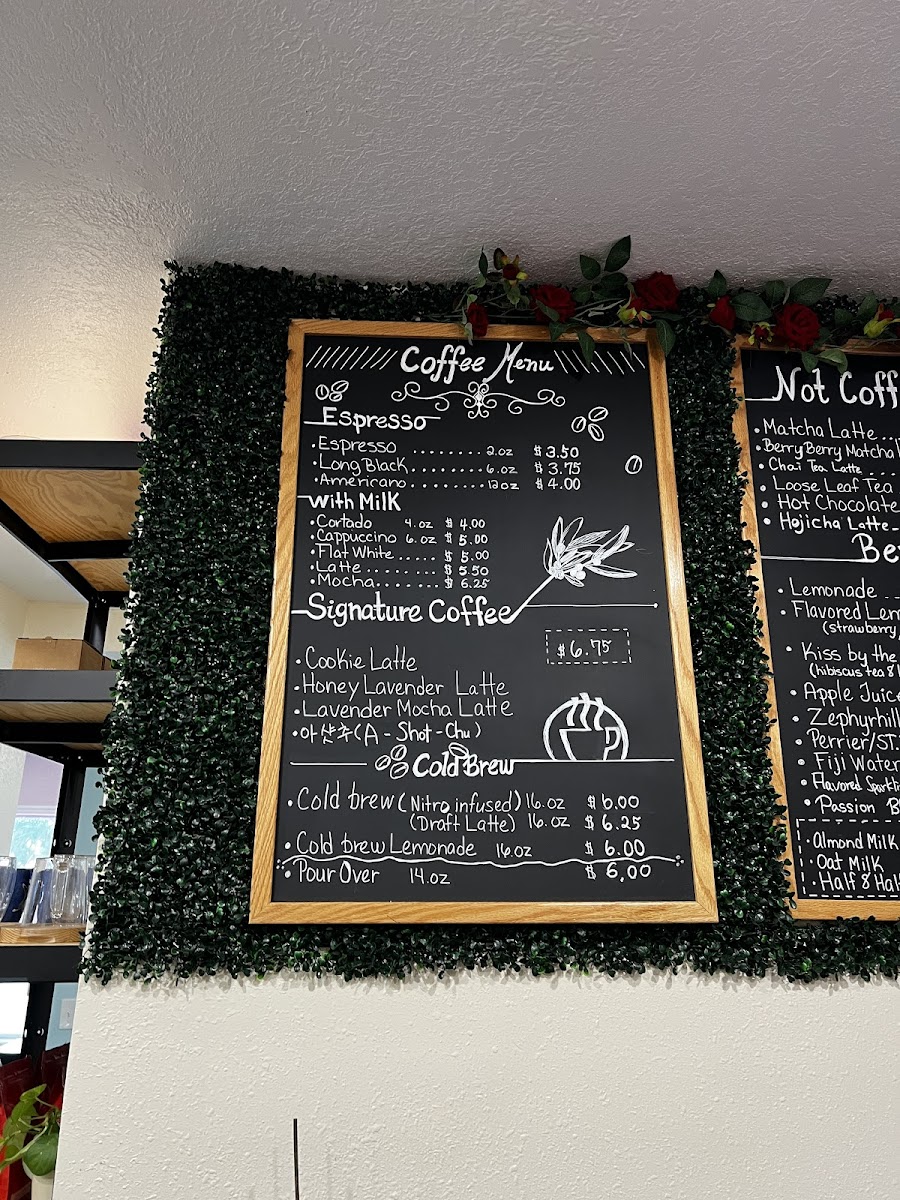 Coffee Menu
Espresso
• Espresso ........ 2.oz $ 3.50
• Long Black ........ 6.oz $ 3.75
• Americano ........ 12oz $ 4.00
with Milk
• Cortado 4.oz $ 4.00
• Cappuccino 6.oz $ 5.00
• Flat White ..... $ 5.00
• Latte ......... $ 5.50
• Mocha ........ $ 6.25
Signature Coffee
$ 6.75
• Cookie Latte
• Honey Lavender Latte
• Lavender Mocha Latte
• 아샷추 (A - Shot - Chu)
Cold Brew
• Cold brew (Nitro infused) 16.oz $ 6.00
(Draft Latte) 16.oz $ 6.25
• Cold brew Lemonade 16.oz $ 6.00
• Pour Over 14.oz $ 6.00
Not Coff
• Matcha Latte ..
• Berry Berry Matcha
• Chai Tea Latte ....
• Loose Leaf Tea
• Hot Chocolate
• Hojicha Latte -
Be
• Lemonade ..
• Flavored Lem
(strawberry,
• Kiss by the
(hibiscus tea &
• Apple Juice
• Zephyrhill
• Perrier/ST.
• Fiji Water
• Flavored Sparkli
• Passion
• Almond Milk
• Oat Milk
• Half & Half